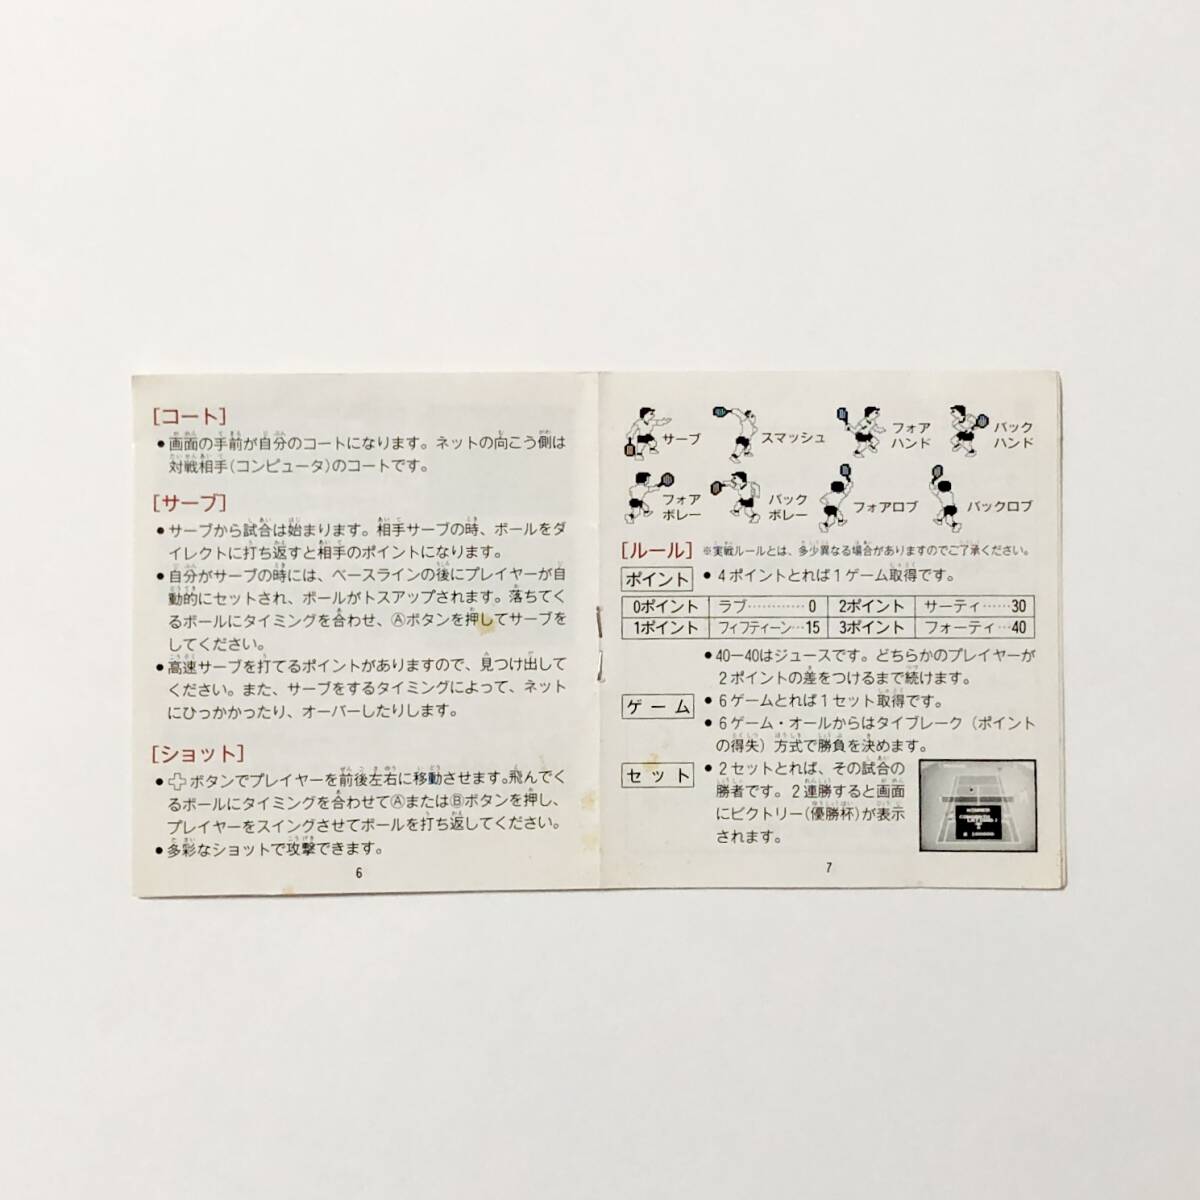 [コート]
●画面の手前が自分のコートになります。ネットの向こう側は
対戦相手(コンピュータ)のコートです。
[サーブ]
●サーブから試合は始まります。相手サーブの時、ボールをダ
イレクトに打ち返すと相手のポイントになります。
●自分がサーブの時には、ベースラインの後にプレイヤーが自
動的にセットされ、ボールがトスアップされます。落ちてく
るボールにタイミングを合わせ、Ⓐボタンを押してサーブを
してください。
●高速サーブを打てるポイントがありますので、見つけ出して
ください。また、サーブをするタイミングによって、ネット
にひっかかったり、オーバーしたりします。
[ショット]
●✚ボタンでプレイヤーを前後左右に移動させます。飛んでく
るボールにタイミングを合わせてⒶまたはⒷボタンを押し、
プレイヤーをスイングさせてボールを打ち返してください。
●多彩なショットで攻撃できます。
6
サーブ
スマッシュ
フォア
ハンド
バック
ハンド
フォア
ボレー
バック
ボレー
フォアロブ
バックロブ
[ルール] ※実戦ルールとは、多少異なる場合がありますのでご了承ください。
ポイント ●4ポイントとれば1ゲーム取得です。
0ポイント ラブ…………0 2ポイント サーティ……30
1ポイント フィフティーン…15 3ポイント フォーティ…40
●40―40はジュースです。どちらかのプレイヤーが
2ポイントの差をつけるまで続けます。
ゲーム ●6ゲームとれば1セット取得です。
●6ゲーム・オールからはタイブレーク(ポイント
の得失)方式で勝負を決めます。
セット ●2セットとれば、その試合の
勝者です。2連勝すると画面
にビクトリー(優勝杯)が表示
されます。
7